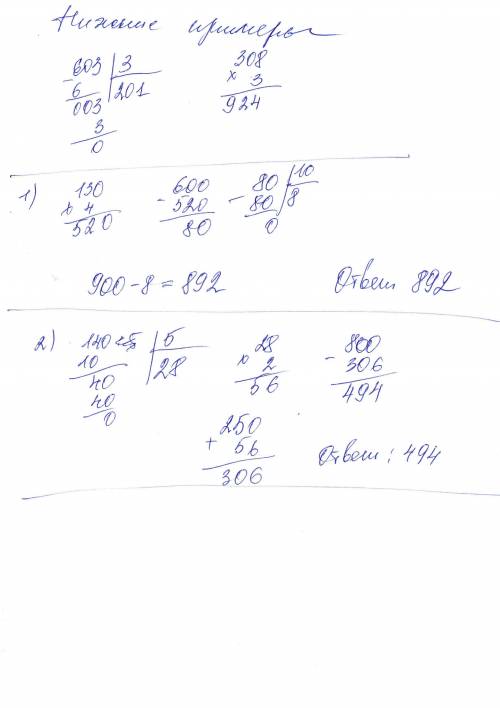 Нижние примеры
603 | 3
- 6 | 201
003
3
0
308
x 3
924
1) 130
x 4
520
- 600
520
80
- 80 | 10
80 | 8
0
900 - 8 = 892 Ответ 892
2) 140 | 5
10 | 28
40
40
0
28
x 2
56
- 800
306
494
250
+ 56
306
Ответ: 494